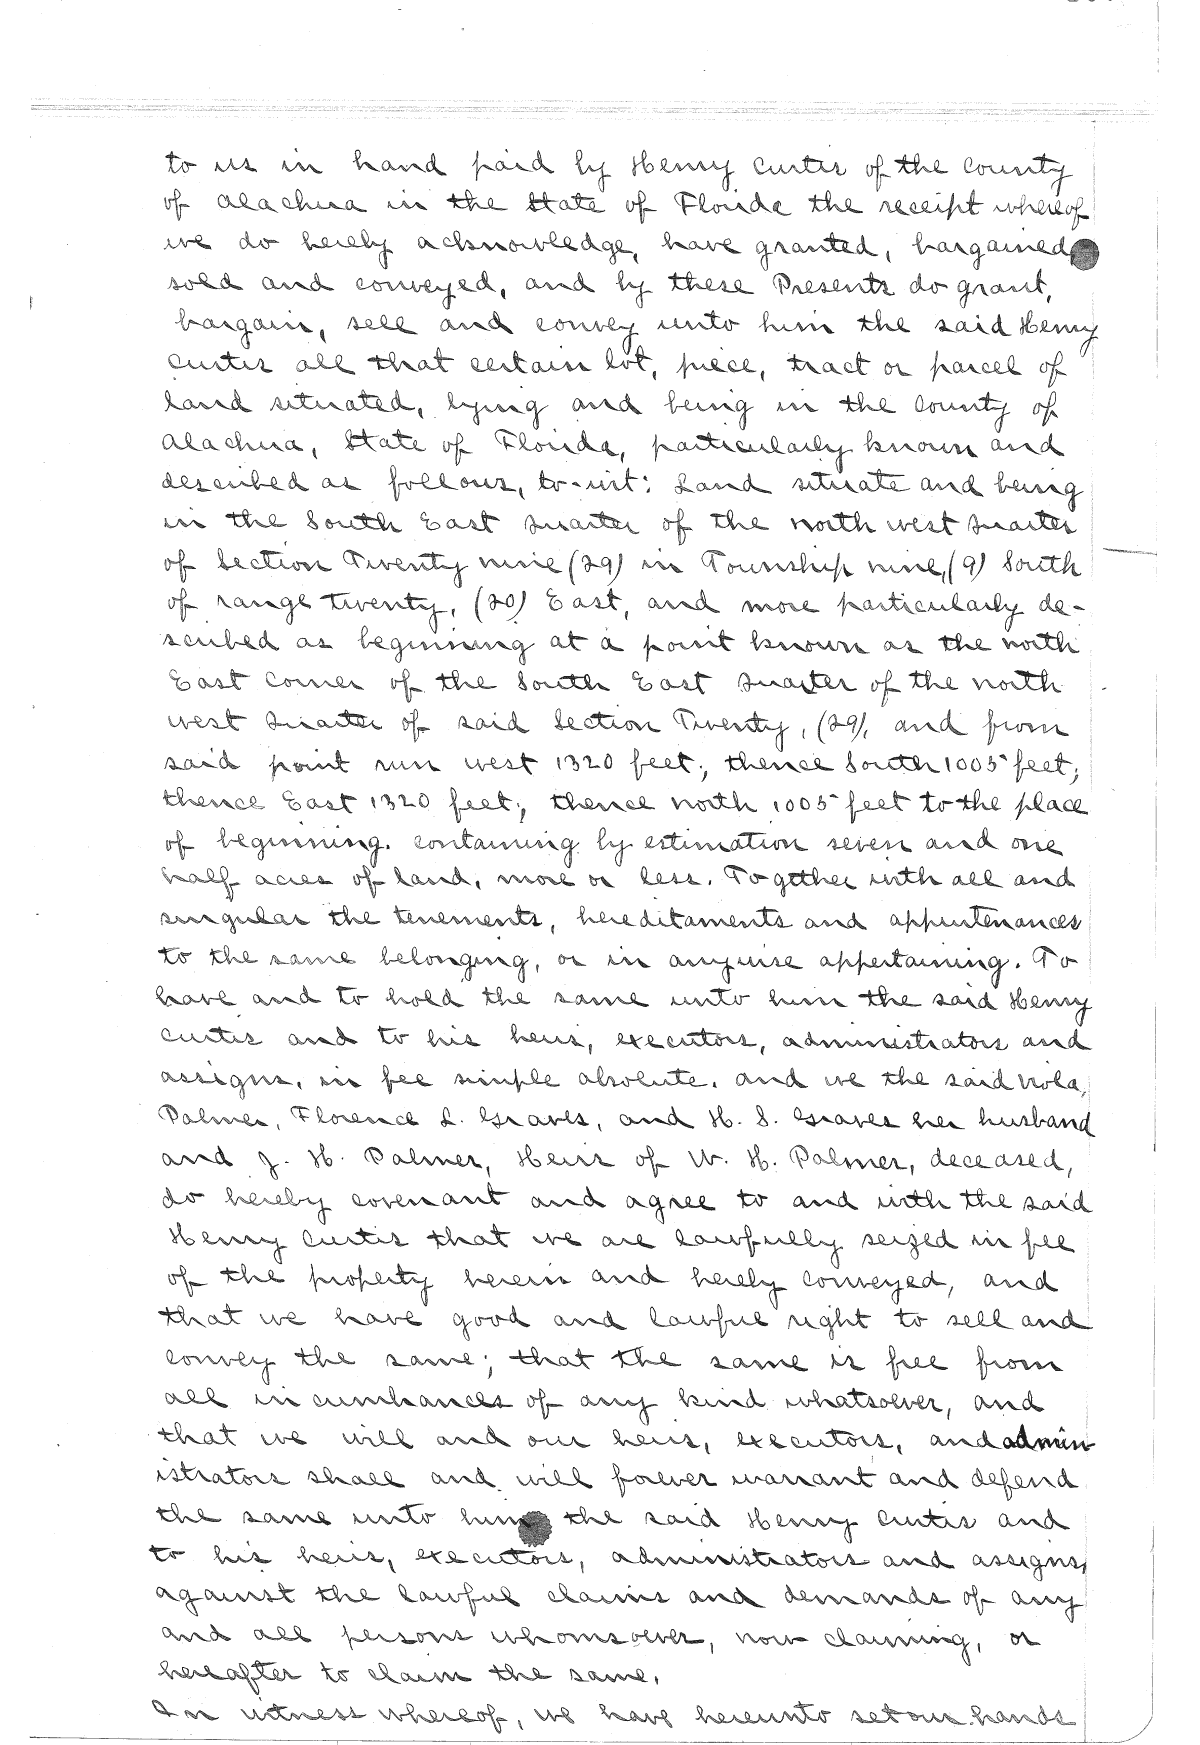 to us in hand paid by Henry Curtis of the County
of Alachua in the State of Florida the receipt whereof
we do hereby acknowledge, have granted, bargained
sold and conveyed, and by these Presents do grant,
bargain, sell and convey unto him the said Henry
Curtis all that certain lot, piece, tract or parcel of
land situated, lying and being in the County of
Alachua, State of Florida, particularly known and
described as follows, to-wit: Land situate and being
in the South East Quarter of the north west Quarter
of Section Twenty nine (29) in Township nine, (9) South
of range twenty, (20) East, and more particularly de-
scribed as beginning at a point known as the north
East Corner of the South East Quarter of the north
west Quarter of said Section Twenty, (29), and from
said point run west 1320 feet; thence South 1005 feet;
thence East 1320 feet; thence north 1005 feet to the place
of beginning. containing by estimation seven and one
half acres of land, more or less. Together with all and
singular the tenements, hereditaments and appurtenances
to the same belonging, or in anywise appertaining. To
have and to hold the same unto him the said Henry
Curtis and to his heirs, executors, administrators and
assigns, in fee simple absolute. and we the said Nola,
Palmer, Florence L. Graves, and H. S. Graves her husband
and J. H. Palmer, Heirs of W. H. Palmer, deceased,
do hereby covenant and agree to and with the said
Henry Curtis that we are lawfully seized in fee
of the property herein and hereby conveyed, and
that we have good and lawful right to sell and
convey the same; that the same is free from
all incumbances of any kind whatsoever, and
that we will and our heirs, executors, and admin
istrators shall and will forever warrant and defend
the same unto him the said Henry Curtis and
to his heirs, executors, administrators and assigns,
against the lawful claims and demands of any
and all persons whomsoever, now claiming, or
hereafter to claim the same.
In witness whereof, we have hereunto set our hands